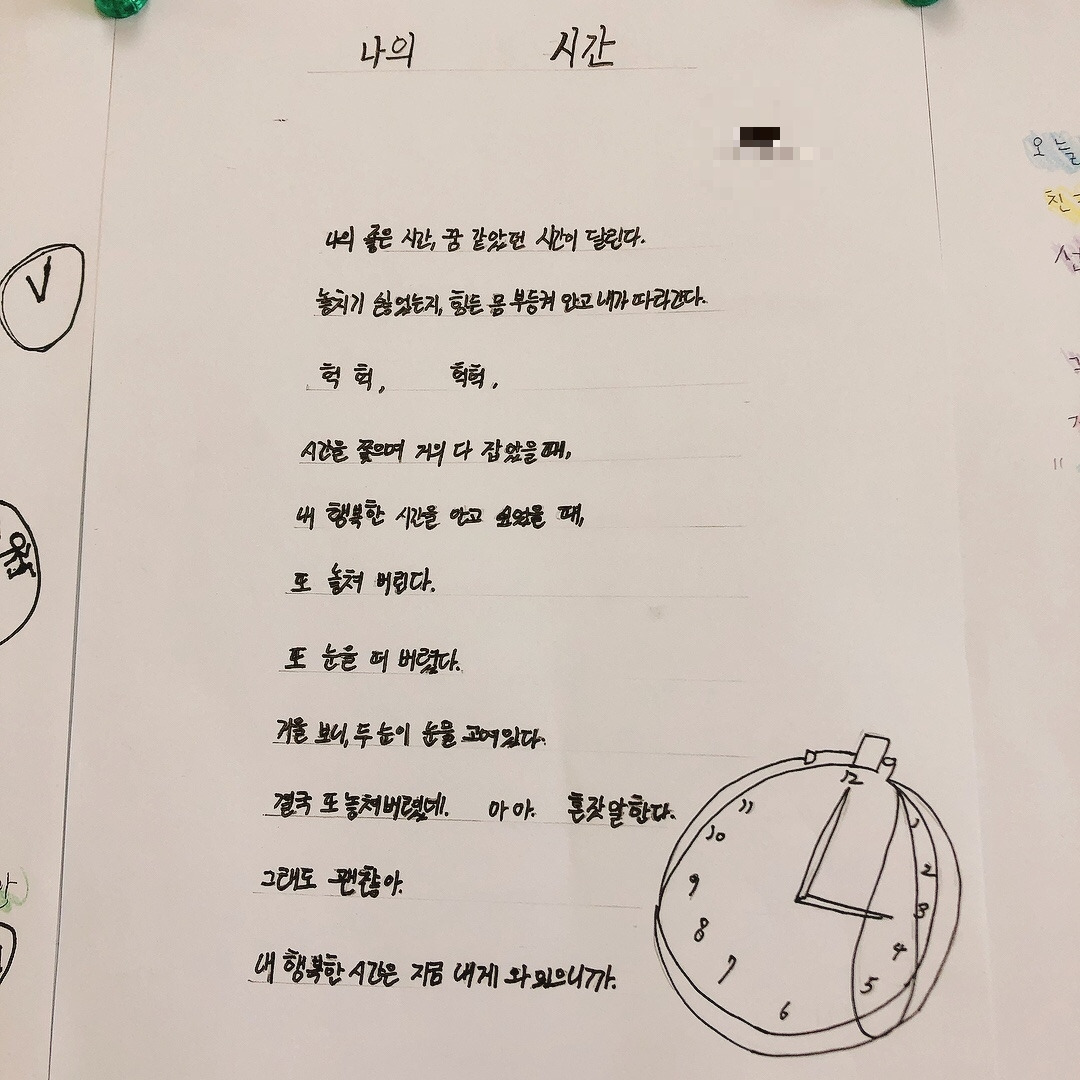 나의 시간
나의 좋은 시간, 꿈 같았던 시간이 달린다.
놓치기 싫었는지, 힘든 몸 부등켜 안고 내가 따라간다.
헉 헉, 헉헉,
시간을 쫓으며 거의 다 잡았을 때,
내 행복한 시간을 안고 있었을 때,
또 놓쳐 버린다.
또 눈을 떠 버렸다.
거울 보니, 두 눈이 눈물 고여있다.
결국 또 놓쳐버렸네. 아 아. 혼잣말한다.
그래도 괜찮아.
내 행복한 시간은 지금 내게 와 있으니까.
12
11
1
10
2
9
3
8
4
7
5
6
오늘
친